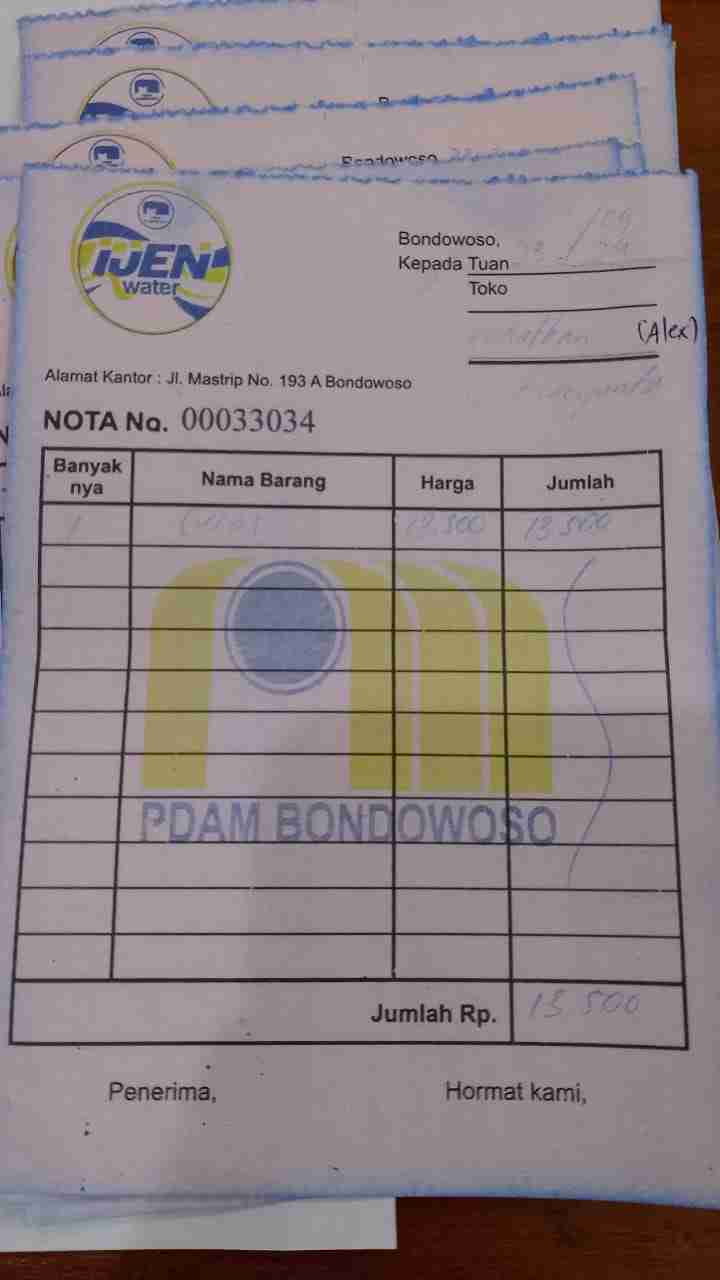 Bondowoso
IJEN
water
Bondowoso,
Kepada Tuan
Toko
(Alex)
Alamat Kantor : Jl. Mastrip No. 193 A Bondowoso
NOTA No. 00033034
Banyak nya Nama Barang Harga Jumlah
1 13.500 13.500
PDAM BONDOWOSO
Jumlah Rp. 13.500
Penerima, Hormat kami,